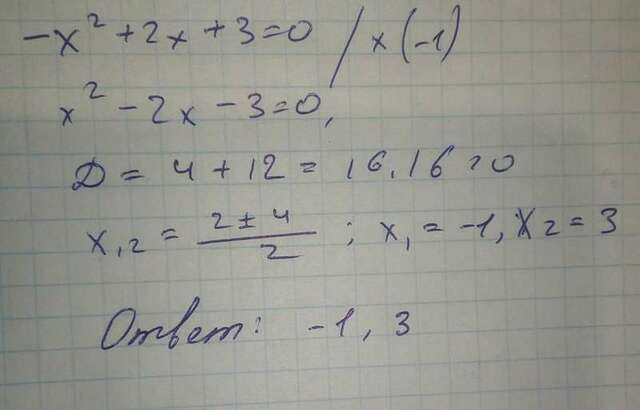 -x² + 2x + 3 = 0 / x (-1)
x² - 2x - 3 = 0,
D = 4 + 12 = 16, 16 > 0
x₁,₂ = (2 ± 4) / 2 ; x₁ = -1, x₂ = 3
Ответ: -1, 3